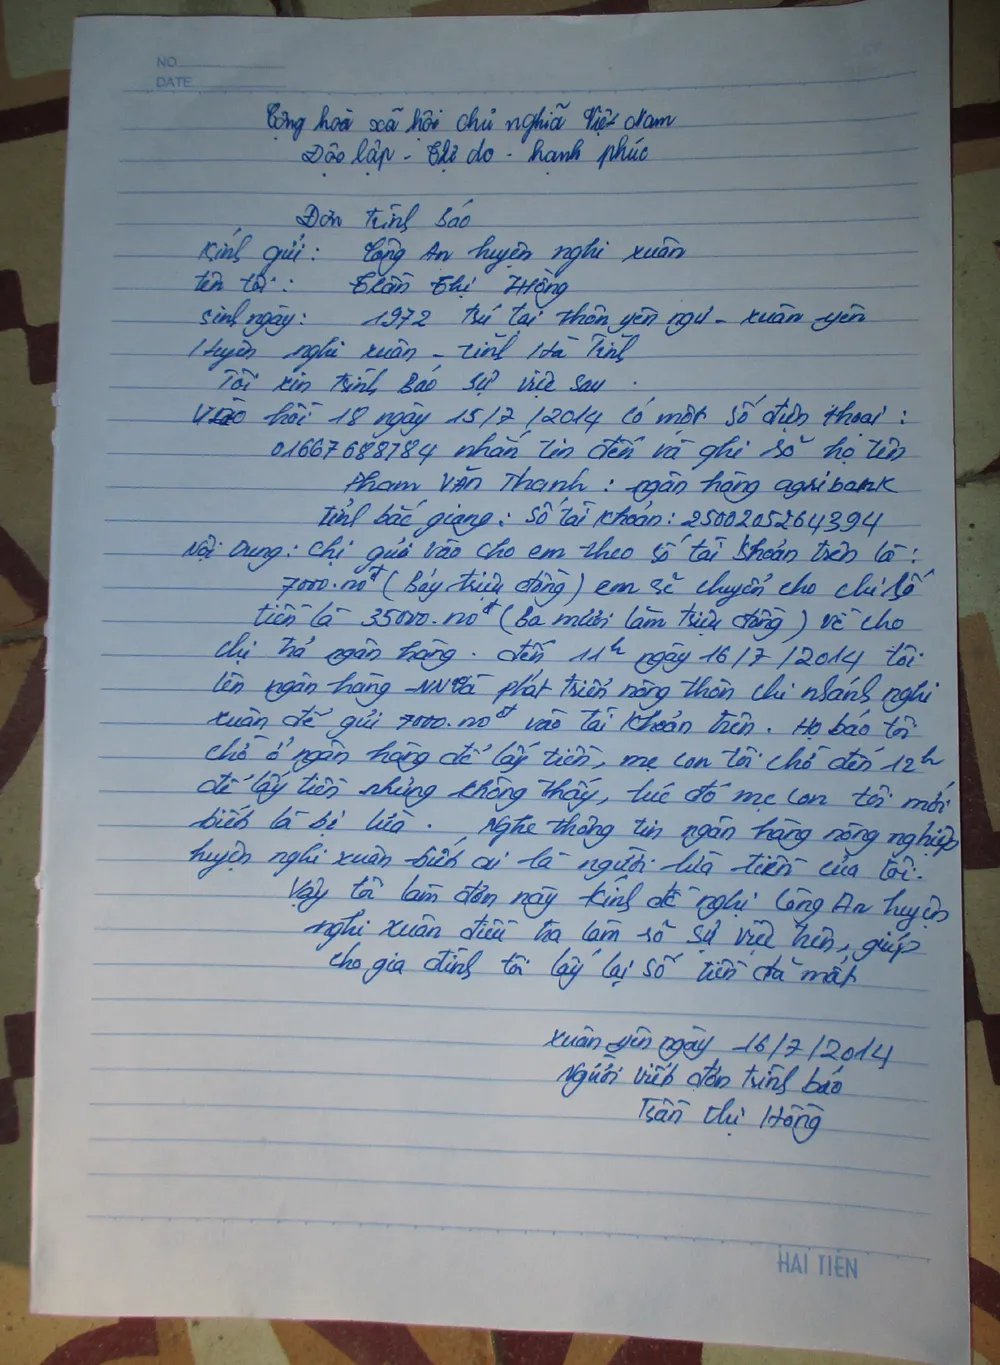 NO.
DATE
Cộng hoà xã hội chủ nghĩa Việt Nam
Độc lập - Tự do - hạnh phúc
Đơn trình báo
Kính gửi: Công An huyện nghi xuân
tên tôi: Trần Thị Hồng
sinh ngày: 1972 trú tại thôn yên ngư - xuân yên
Huyện nghi xuân - tỉnh Hà Tĩnh
Tôi xin trình báo sự việc sau.
Vào hồi 18 ngày 15/7/2014 có một số điện thoại:
01667688784 nhắn tin đến và ghi số họ tên
Phạm Văn Thanh: ngân hàng agribank
tỉnh bắc giang: số tài khoản: 2500205264394
Nội Dung: chị gửi vào cho em theo số tài khoản trên là:
7000.no đ (Bảy triệu đồng) em sẽ chuyển cho chị số
tiền là 35000.no đ (Ba mươi lăm triệu đồng) về cho
chị trả ngân hàng. đến 11h ngày 16/7/2014 tôi
lên ngân hàng NN và phát triển nông thôn chi nhánh nghi
xuân để gửi 7000.no đ vào tài khoản trên. Họ báo tôi
chờ ở ngân hàng để lấy tiền, mẹ con tôi chờ đến 12h
để lấy tiền nhưng không thấy, lúc đó mẹ con tôi mới
biết là bị lừa. Nghe thông tin ngân hàng nông nghiệp
huyện nghi xuân biết ai là người lừa tiền của tôi.
Vậy tôi làm đơn này kính đề nghị Công An huyện
nghi xuân điều tra làm rõ sự việc trên, giúp
cho gia đình tôi lấy lại số tiền đã mất
xuân yên ngày 16/7/2014
Người viết đơn trình báo
Trần Thị Hồng
HẢI TIẾN